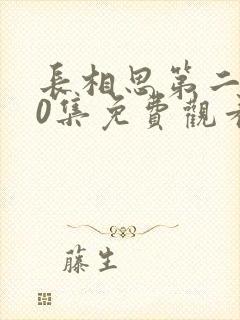 長相思第二
0集免費觀看
藤生